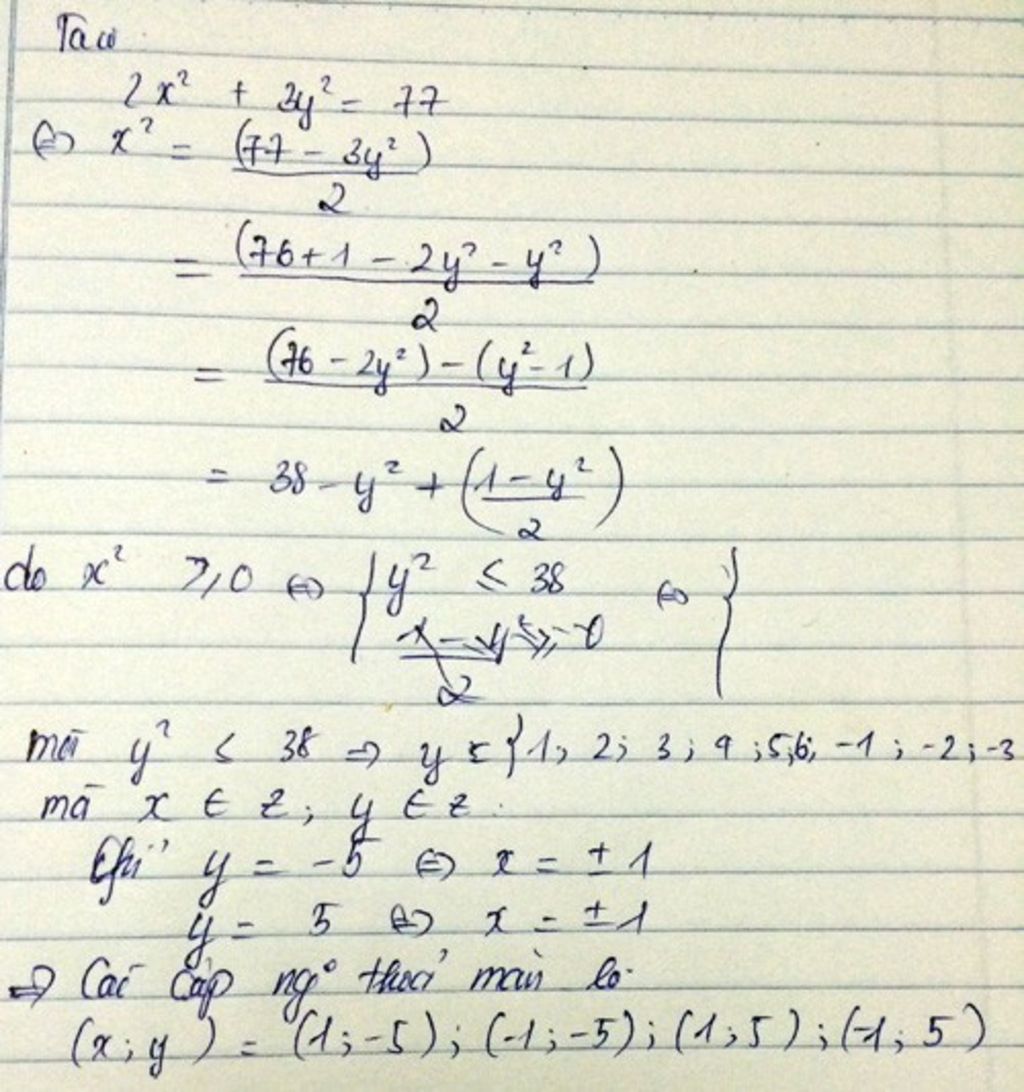 Ta có
2x² + 3y² = 77
⇔ x² = (77 - 3y²) / 2
= (76 + 1 - 2y² - y²) / 2
= (76 - 2y²) - (y² - 1) / 2
= 38 - y² + (1 - y² / 2)
do x² ≥ 0 ⇔ { y² ≤ 38 ⇔ {
mà y² ≤ 38 ⇒ y ∈ { 1; 2; 3; 4; 5; 6; -1; -2; -3
mà x ∈ Z; y ∈ Z.
y = -5 ⇔ x = ±1
y = 5 ⇔ x = ±1
⇒ Các cặp ngº thoả mãn là
(x; y) = (1; -5); (-1; -5); (1; 5); (-1; 5)